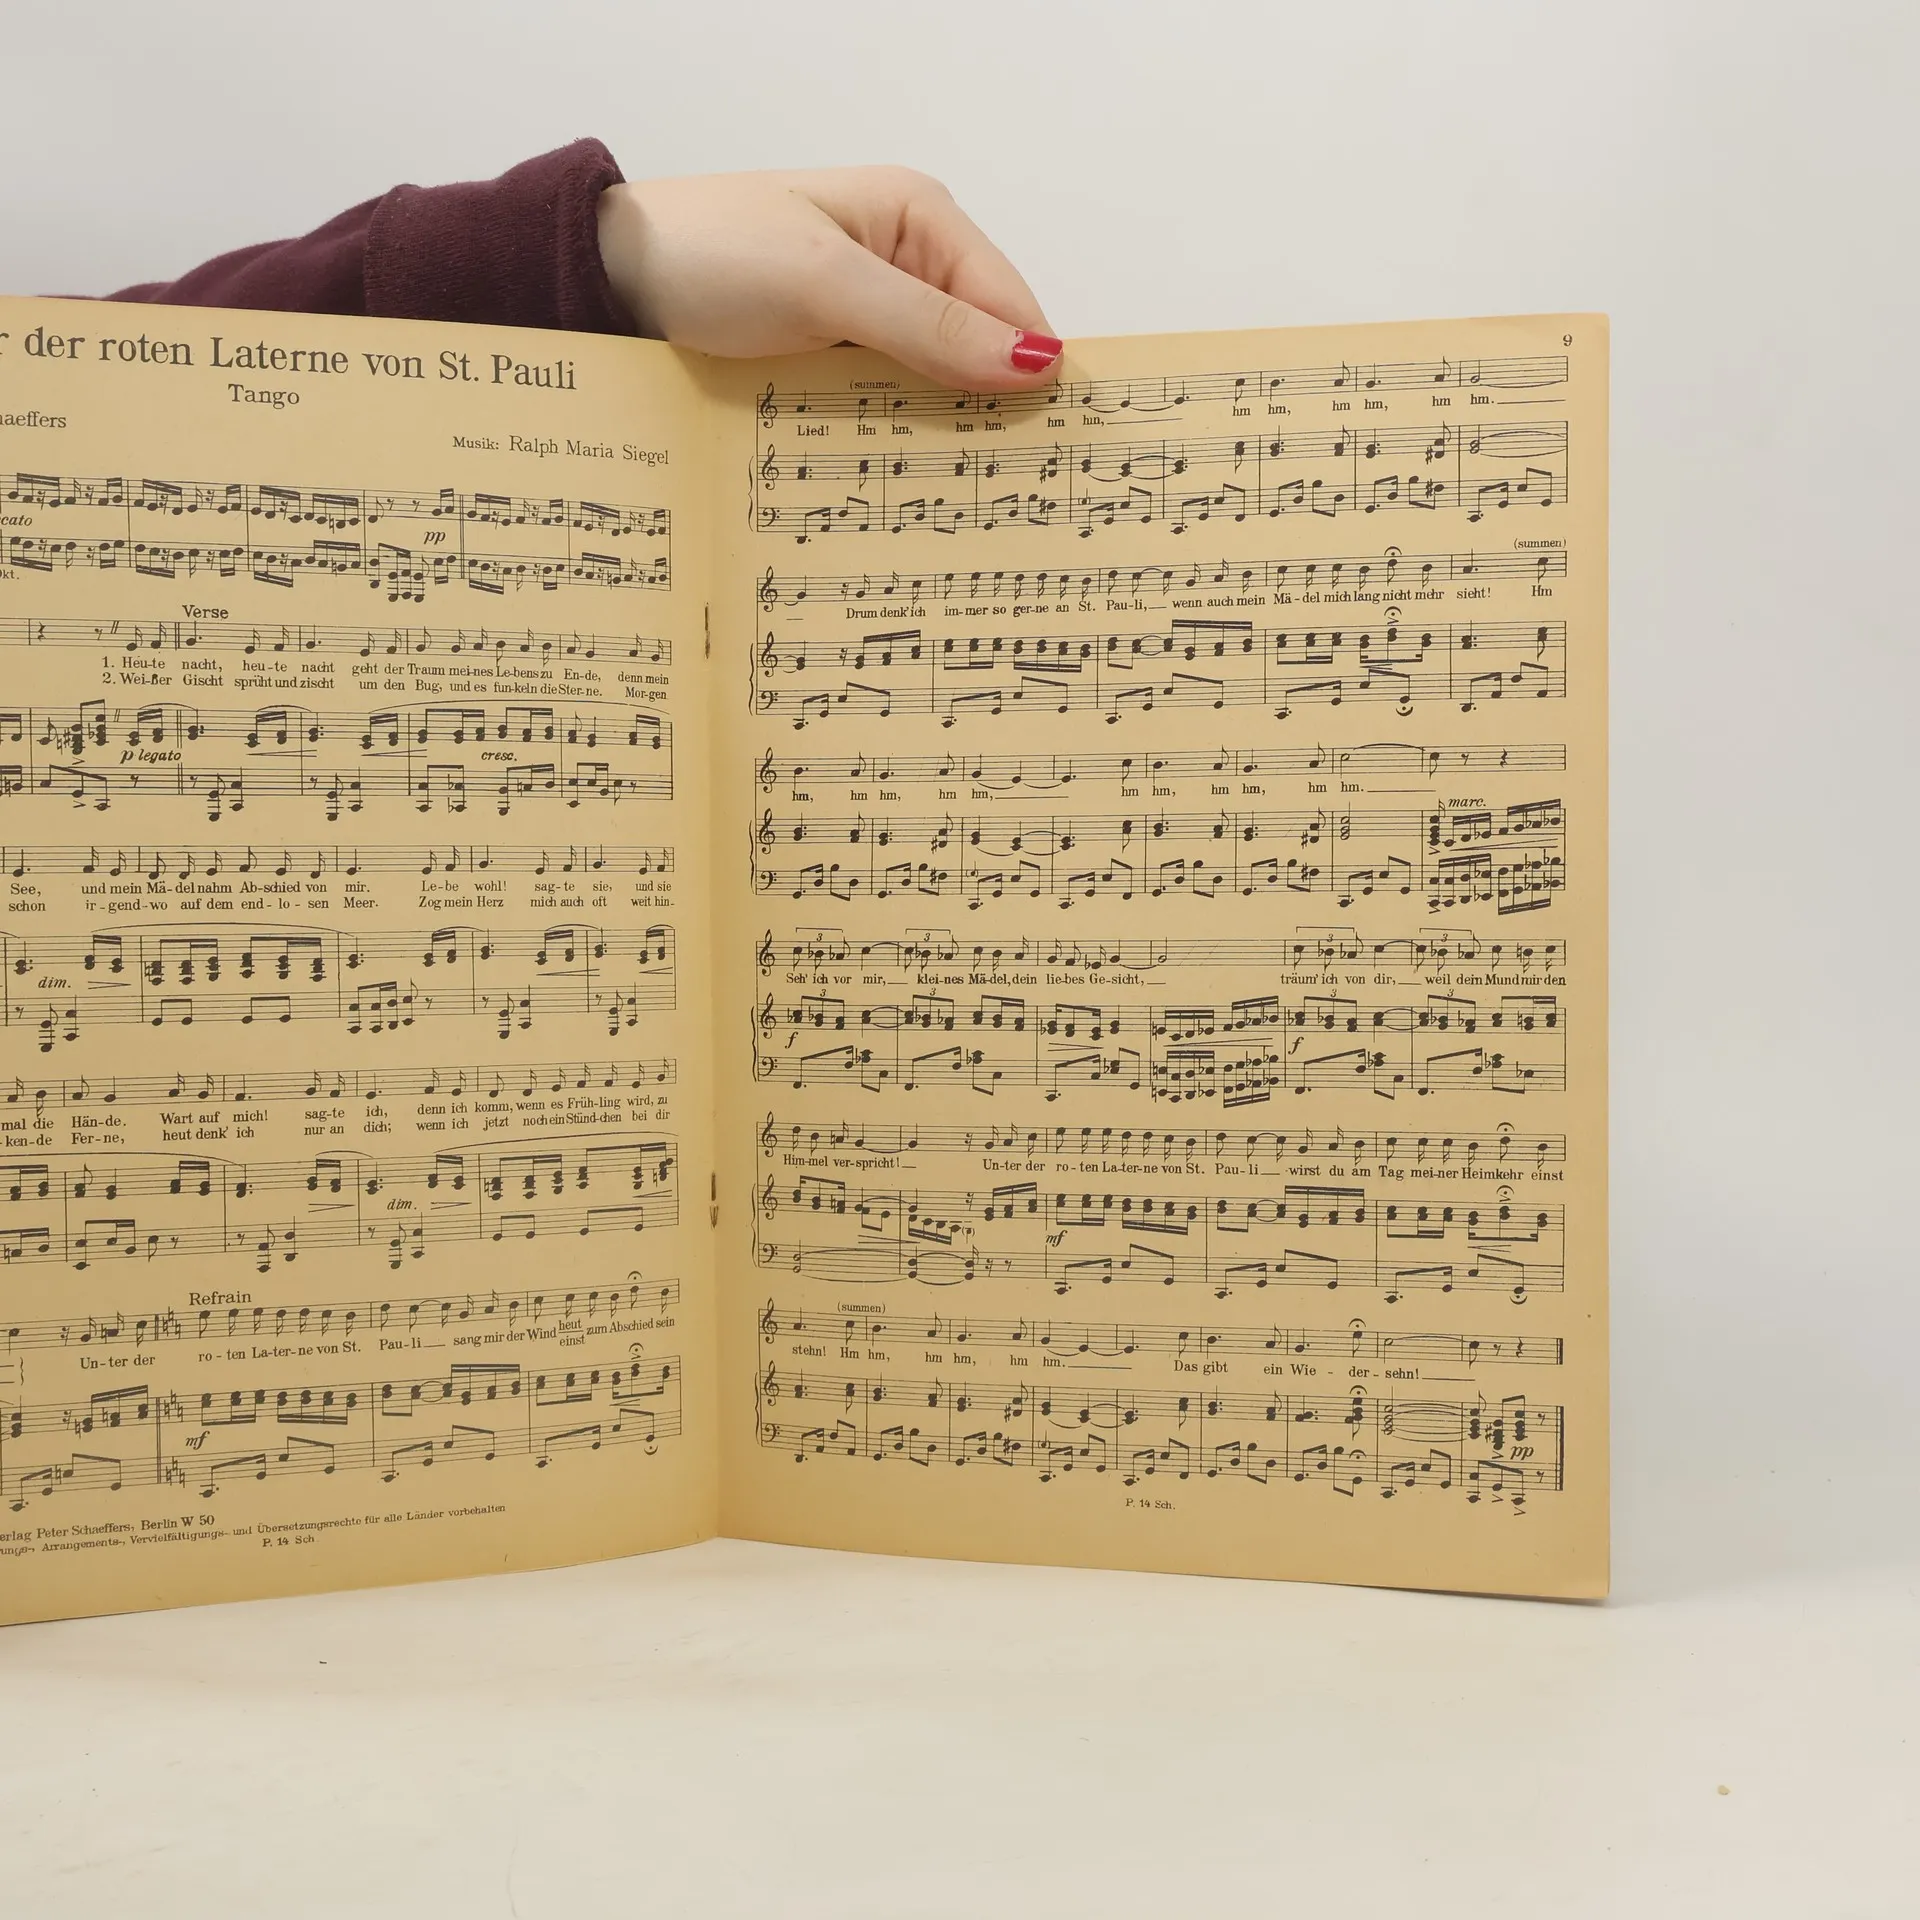 der roten Laterne von St. Pauli
Tango
haeffers
Musik: Ralph Maria Siegel
cato
pp
Okt.
Verse
1. Heu-te nacht, heu-te nacht geht der Traum mei-nes Le-bens zu En-de, denn mein
2. Wei-ßer Gischt sprüht und zischt um den Bug, und es fun-keln die Ster-ne. Mor-gen
p legato
cresc.
See, und mein Mä-del nahm Ab-schied von mir. Le-be wohl! sag-te sie, und sie
schon ir-gend-wo auf dem end-lo-sen Meer. Zog mein Herz mich auch oft weit hin-
dim.
mal die Hän-de. Wart auf mich! sag-te ich, denn ich komm, wenn es Früh-ling wird, zu
ken-de Fer-ne, heut denk' ich nur an dich; wenn ich jetzt noch ein Stünd-chen bei dir
dim.
Refrain
Un-ter der ro-ten La-ter-ne von St. Pau-li sang mir der Wind heut zum Abschied sein
einst
mf
erlag Peter Schaeffers, Berlin W 50
ungs-, Arrangements-, Vervielfältigungs- und Übersetzungsrechte für alle Länder vorbehalten
P. 14 Sch
9
(summen)
Lied! Hm hm, hm hm, hm hm, hm hm, hm hm, hm hm.
(summen)
Drum denk' ich im-mer so ger-ne an St. Pau-li, wenn auch mein Mä-del mich lang nicht mehr sieht! Hm
hm, hm hm, hm hm, hm hm, hm hm, hm hm.
marc.
3 3 3 3
Seh' ich vor mir, klei-nes Mä-del, dein lie-bes Ge-sicht, träum' ich von dir, weil dein Mund mir den
3 3 3 3
f f
Him-mel ver-spricht! Un-ter der ro-ten La-ter-ne von St. Pau-li wirst du am Tag mei-ner Heimkehr einst
mf
(summen)
stehn! Hm hm, hm hm, hm hm. Das gibt ein Wie-der-sehn!
pp
P. 14 Sch.